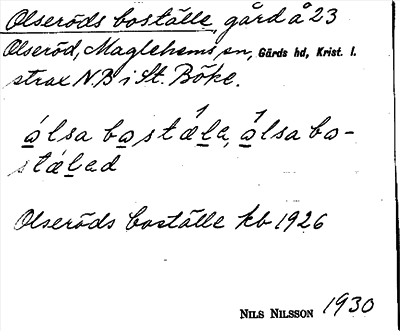 Olseröds boställe, gård å 23
Olseröd, Maglehems sn, Gärds hd, Krist. l.
strax N.B i St. Böke.
ólsa bostæ̀le, ólsa bo-
stæ̀led
Olseröds boställe kb 1926
NILS NILSSON 1930